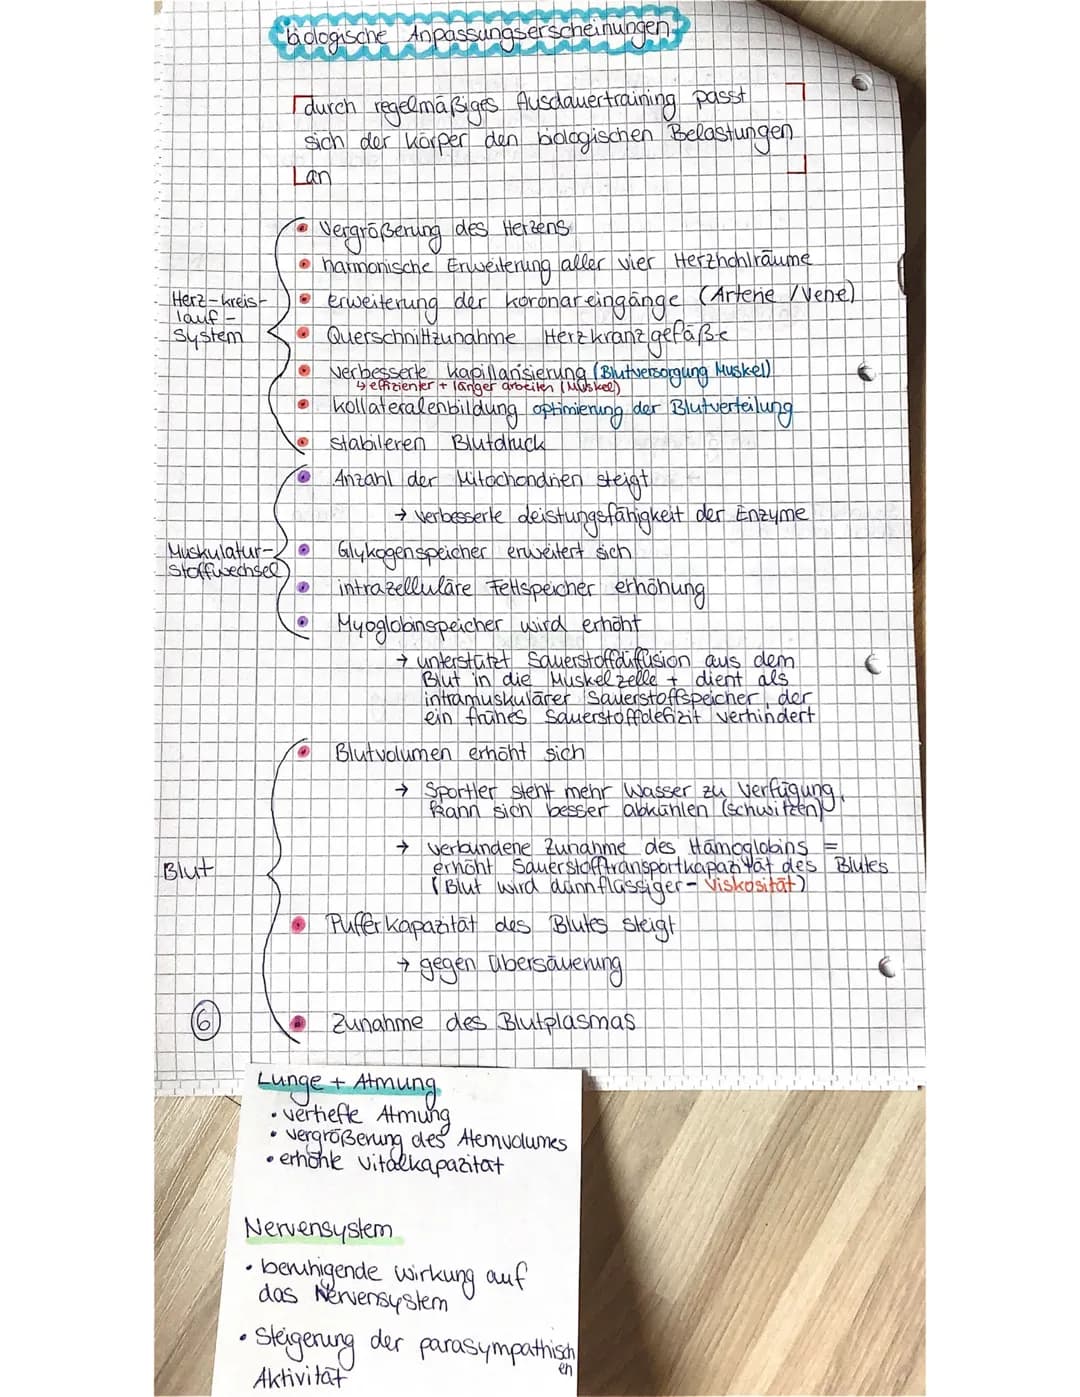 biologische Anpassungserscheinungen
durch regelmäßiges Ausdauertraining passt
sich der Körper den biologischen Belastungen
an
Herz-kreis-
lauf-
system
• Vergrößerung des Herzens
• harmonische Erweiterung aller vier Herzhohlräume
• erweiterung der koronareingänge (Arterie /Vene)
• Querschnittzunahme Herzkranzgefäße
• verbesserte kapillarisierung (Blutversorgung Muskel)
↳ effizienter + länger arbeiten (Muskel)
• kollateralenbildung optimierung der Blutverteilung
• stabileren Blutdruck
Muskulatur-
Stoffwechsel
• Anzahl der Mitochondrien steigt
→ verbesserte Leistungsfähigkeit der Enzyme
• Glykogenspeicher erweitert sich
• intrazelluläre Fettspeicher erhöhung
• Myoglobinspeicher wird erhöht
→ unterstützt Sauerstoffdifusion aus dem
Blut in die Muskelzelle + dient als
intramuskulärer Sauerstoffspeicher, der
ein frühes Sauerstoffdefizit verhindert
Blut
• Blutvolumen erhöht sich
→ Sportler steht mehr Wasser zu Verfügung,
kann sich besser abkühlen (schwitzen)
→ verbundene Zunahme des Hämoglobins =
erhöht Sauerstofftransportkapazität des Blutes
(Blut wird dünnflüssiger - Viskosität)
• Pufferkapazität des Blutes steigt
→ gegen übersäuerung
• Zunahme des Blutplasmas
6
Lunge + Atmung
• vertiefte Atmung
• vergrößerung des Atemvolumes
• erhöhte vitalkapazität
Nervensystem
• beruhigende wirkung auf
das Nervensystem
• Steigerung der parasympathisch
en
Aktivität